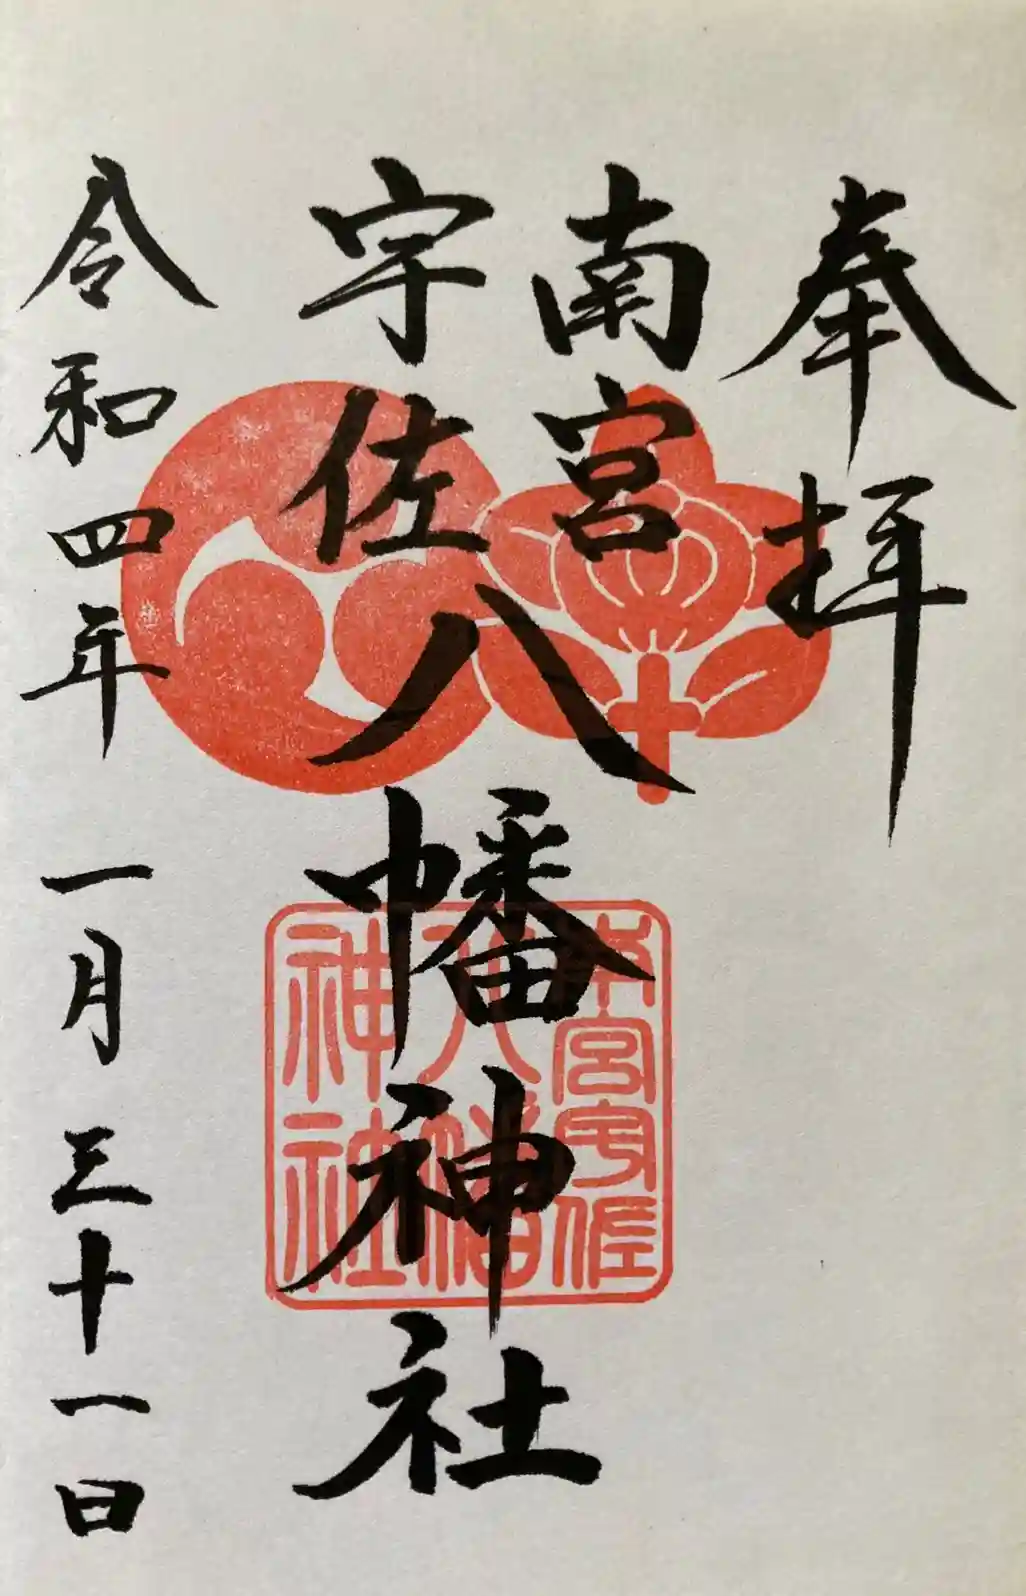 奉拝
南宮
宇佐八幡神社
令和四年一月三十一日
南宮宇佐
八幡
神社